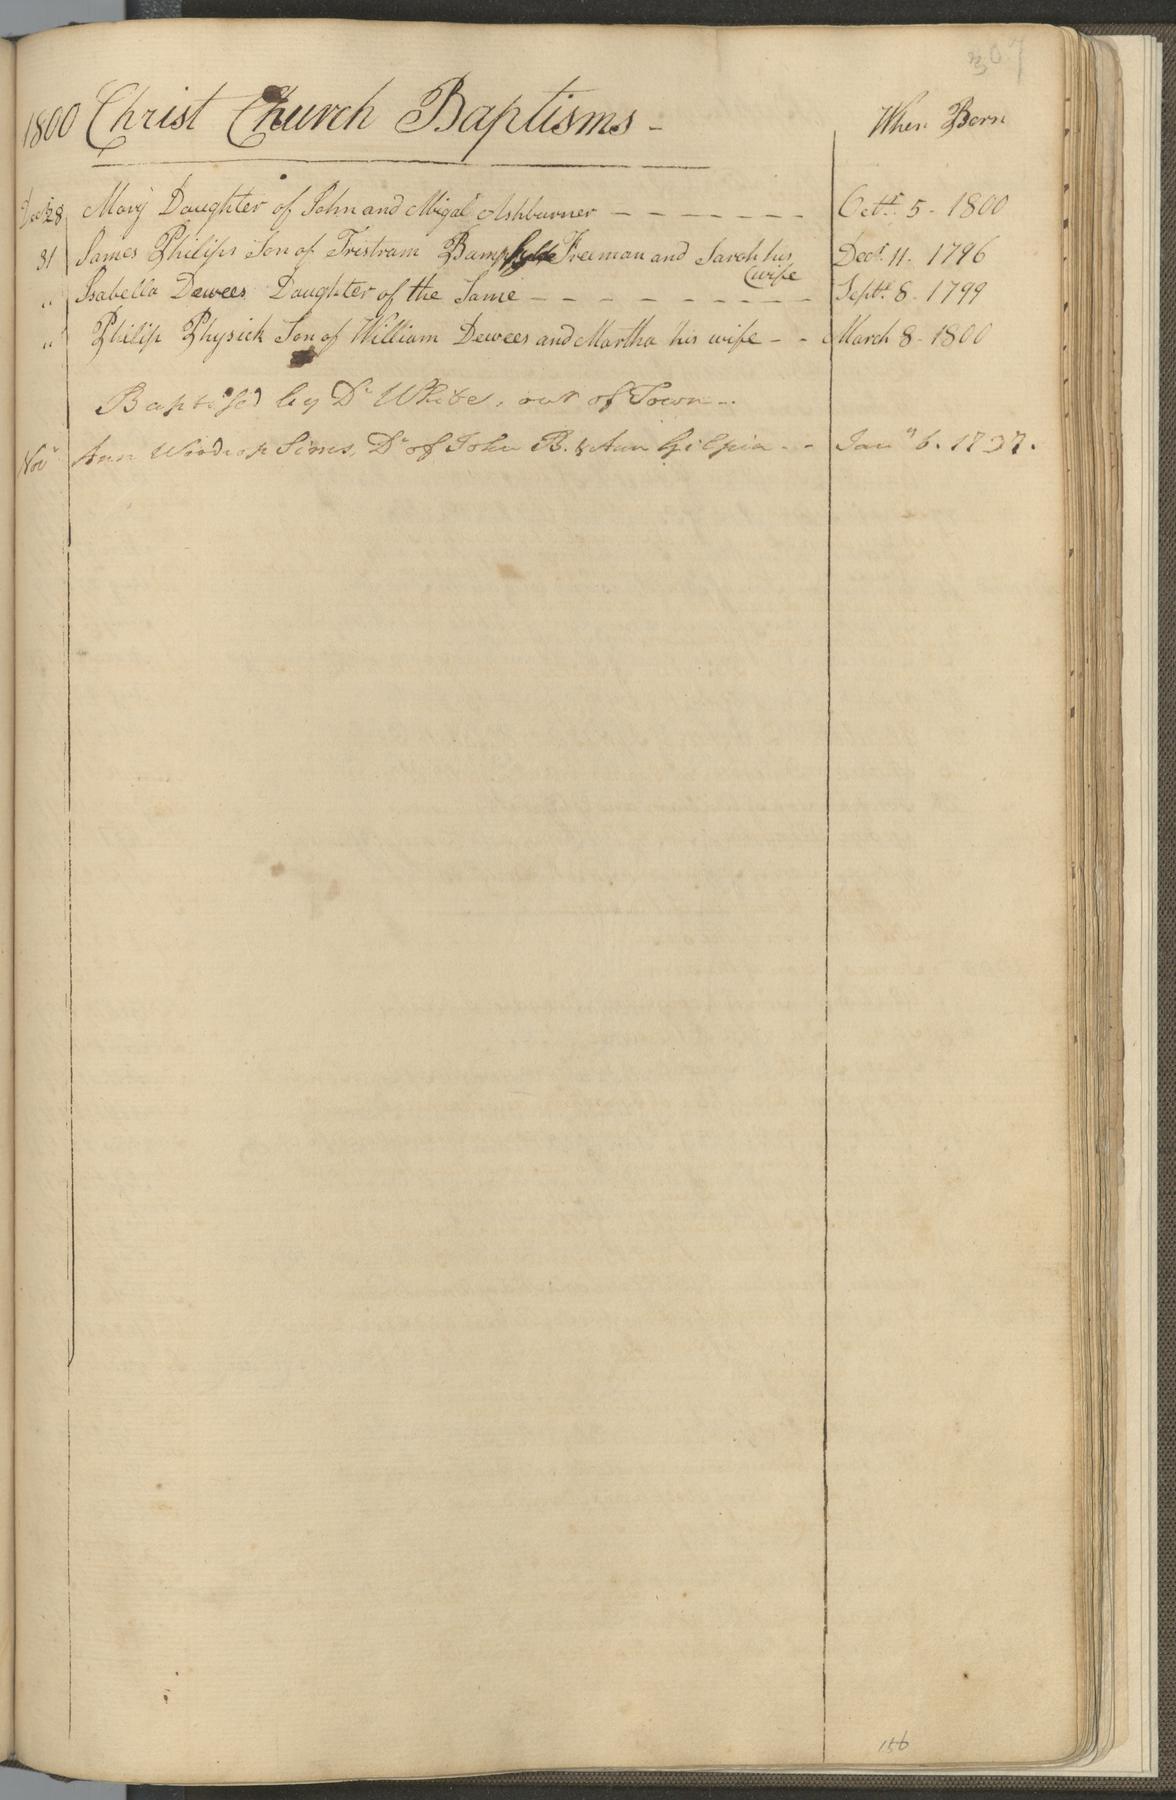 307
1800 Christ Church Baptisms - When Born
Decr 28 Mary Daughter of John and Abigal Ashburner - - - - - - - Octr. 5 - 1800
31 James Philips Son of Tristram Bampfylde Freeman and Sarah his Decr. 11. 1796
(wife
" Isabella Dewees Daughter of the Same - - - - - - - - Septr. 8. 1799
" Philip Physick Son of William Dewees and Martha his wife - - March 8 - 1800
Baptised by Dr White, out of Town -.
Novr Ann Woodrop Sims, Dr of John B. & Ann Gilpin - - Jany 6. 1737.
156